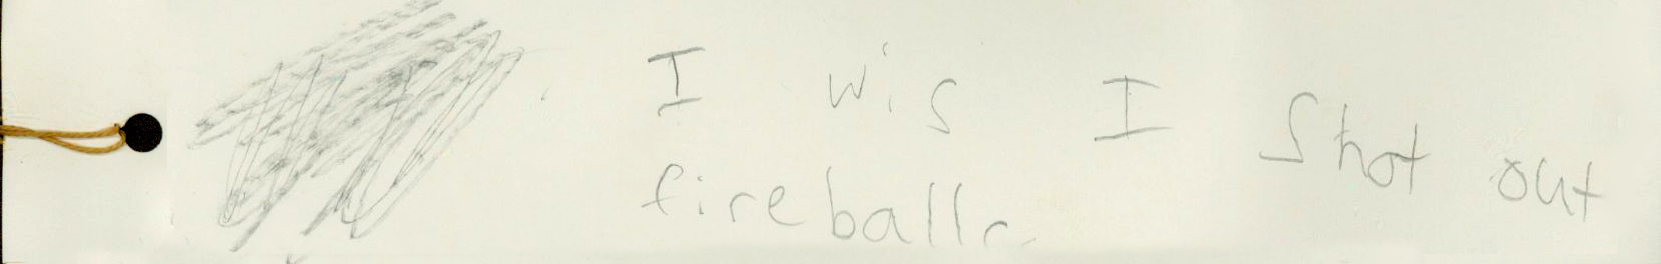 I wis I Shot out
fireballs